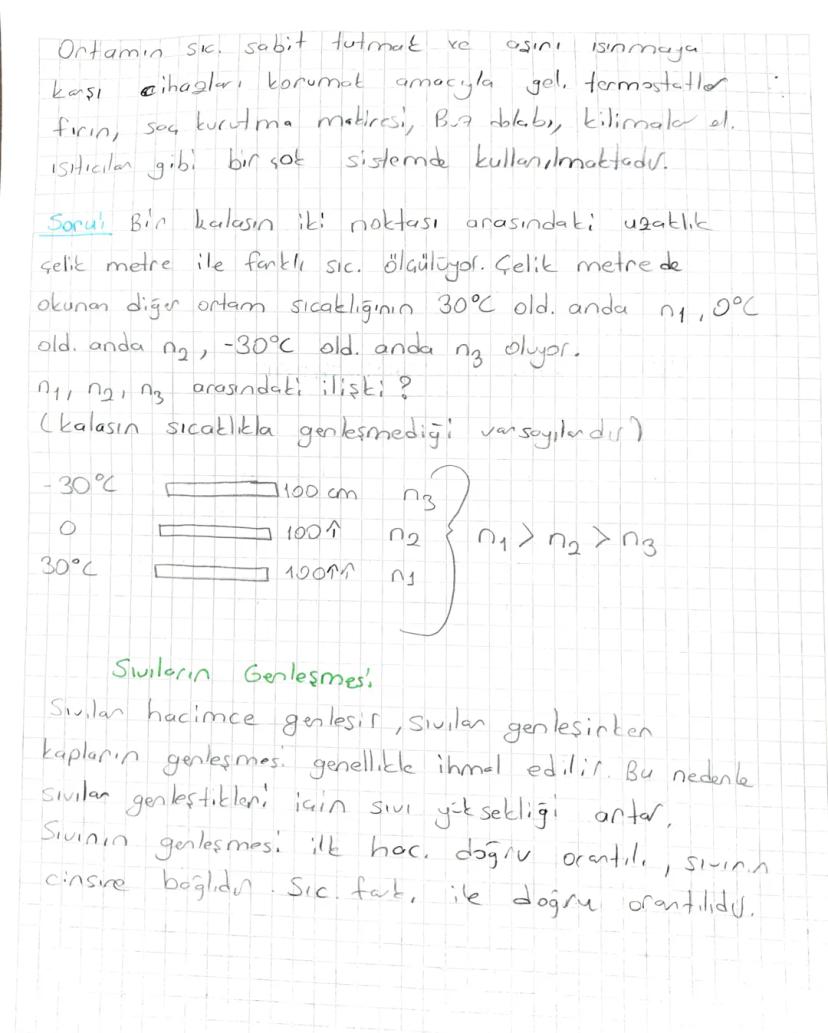 Ortamın sıc. sabit tutmak ve aşırı ısınmaya
karşı cihazları korumak amacıyla gel. termostatlar
fırın, saç kurutma makinesi, Buz dolabı, kilimalar el.
ısıtıcıları gibi bir çok sistemde kullanılmaktadır.
Soru: Bir kalasın iki noktası arasındaki uzaklık
çelik metre ile farklı sıc. ölçülüyor. Çelik metre de
okunan diğer ortam sıcaklığının 30°C old. anda n1, 0°C
old. anda n2, -30°C old. anda n3 oluyor.
n1, n2, n3 arasındaki ilişki?
(kalasın sıcaklıkla genleşmediği varsayılandır)
-30°C 100 cm n3
0 100↑ n2 n1 > n2 > n3
30°C 100↑↑ n1
Sıvıların Genleşmesi
Sıvılar hacimce genleşir, sıvılar genleşirken
kapların genleşmesi genellikle ihmal edilir. Bu nedenle
sıvılar genleştikleri için sıvı yüksekliği artar.
Sıvının genleşmesi ilk hac. doğru orantılı, sıvının
cinsine bağlıdır. Sıc. fark. ile doğru orantılıdır.